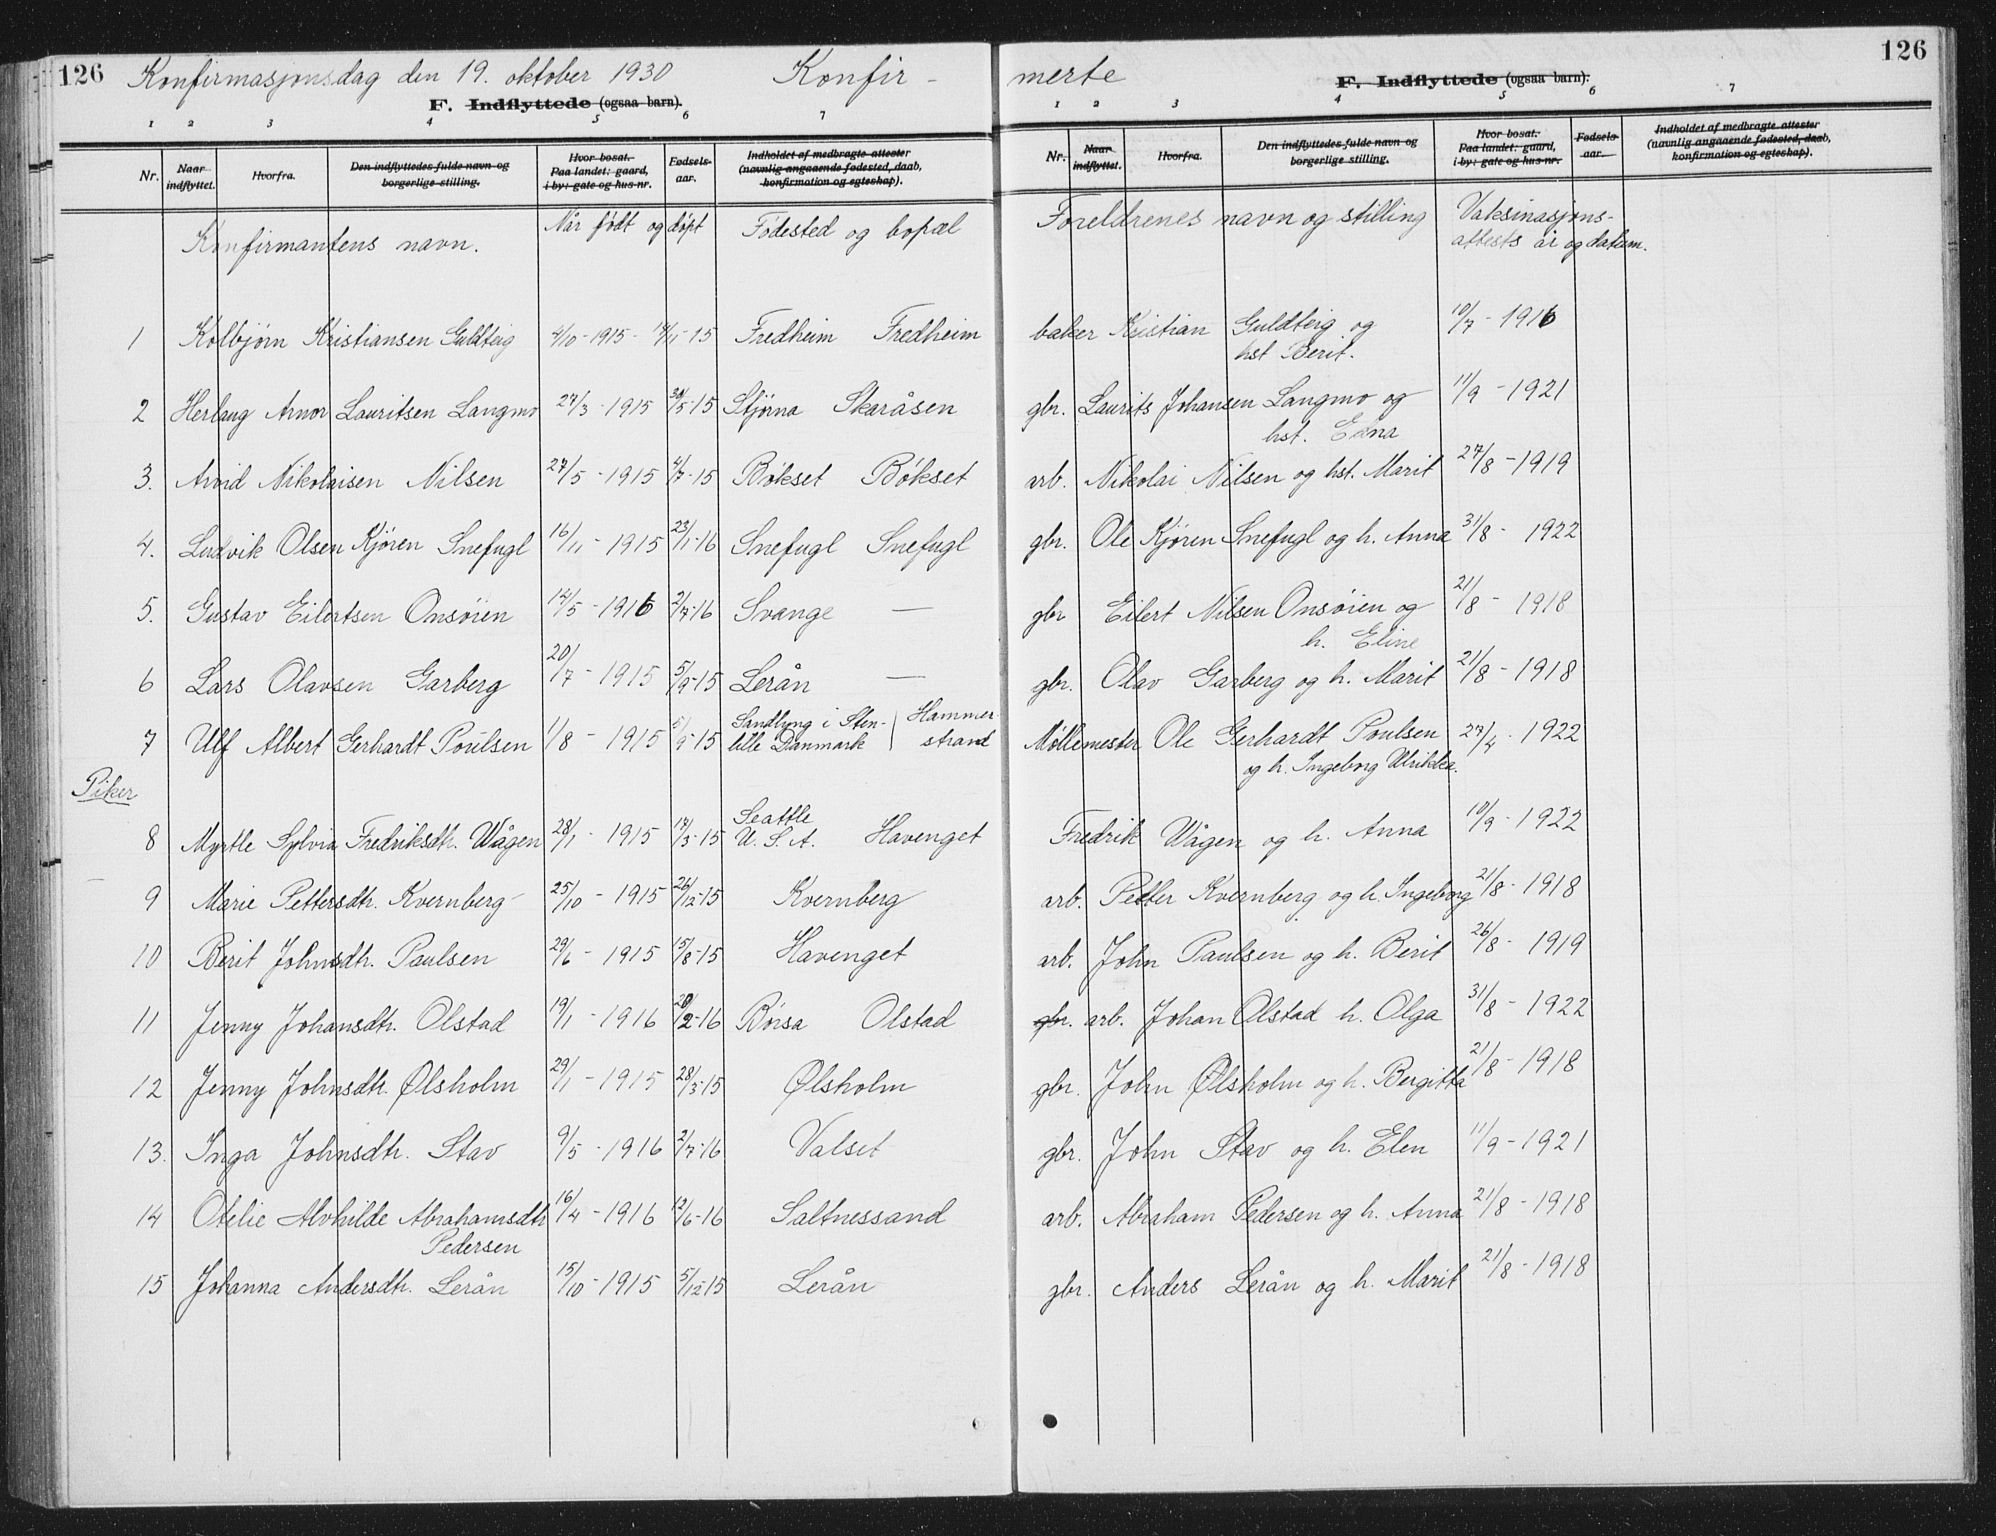 126 Konfirmasjonsdag den 19. oktober 1930 Konfir-
F. Indflyttede (ogsaa barn).
1 2 3 4 5 6 7
Nr. Naar indflyttet. Hvorfra. Den indflyttedes fulde navn og borgerlige stilling. Hvor bosat. Paa landet: gaard, i by: gate og hus-nr. Fødsels-aar. Indholdet af medbragte attester (navnlig angaaende fødested, daab, konfirmation og egteskap).
Konfirmantens navn. Når født og døpt Fødested og bopæl
1 Kolbjørn Kristiansen Guldteig 4/10-1915 - 14/11-15 Fredheim Fredheim
2 Herlaug Arnor Lauritsen Langmo 27/3-1915 30/5-15 Stjørna Skaråsen
3. Arvid Nikolaisen Nilsen 27/5-1915 4/7-15 Bøkset Bøkset
4. Ludvik Olsen Kjøren Snefugl 16/11-1915 23/1-16 Snefugl Snefugl
5. Gustav Eilertsen Onsøien 14/5-1916 2/7-16 Svange —
6 Lars Olavsen Garberg 20/7-1915 5/9-15 Lerån —
7 Ulf Albert Gerhardt Poulsen 1/8-1915 5/9-15 Sandlyng i Sten-lille Danmark Hammer-strand
Piker
8 Myrtle Sylvia Fredriksdtr. Wågen 28/1-1915 14/3-15 Seattle U.S.A. Havenget
9 Marie Pettersdtr. Kvernberg 25/10-1915 26/12-15 Kvernberg
10 Berit Johnsdtr. Paulsen 29/6-1915 15/8-15 Havenget
11 Jenny Johansdtr. Olstad 19/1-1916 20/2-16 Børsa Olstad
12 Jenny Johnsdtr. Ølsholm 29/1-1915 28/3-15 Ølsholm
13. Inga Johnsdtr. Stav 9/5-1916 2/7-16 Valset
14 Otelie Alvhilde Abrahamsdtr 16/4-1916 12/6-16 Saltnessand
Pedersen
15 Johanna Andersdtr. Lerån 15/10-1915 5/12-15 Lerån
merte 126
F. Indflyttede (ogsaa barn).
1 2 3 4 5 6 7
Nr. Naar indflyttet. Hvorfra. Den indflyttedes fulde navn og borgerlige stilling. Hvor bosat. Paa landet: gaard, i by: gate og hus-nr. Fødsels-aar. Indholdet af medbragte attester (navnlig angaaende fødested, daab, konfirmation og egteskap).
Foreldrenes navn og stilling Vaksinasjons-
attests år og datum.
baker Kristian Guldteig og 10/7-1916
hst Berit.
gbr. Laurits Johansen Langmo og 11/9-1921
hst. Edna
arb. Nikolai Nilsen og hst. Marit 27/8-1919
gbr. Ole Kjøren Snefugl og h. Anna 31/8-1922
gbr Eilert Nilsen Onsøien og 21/8-1918
h. Eline
gbr. Olav Garberg og h. Marit 21/8-1918
Møllemester Ole Gerhardt Poulsen 27/4-1922
og h. Ingeborg Ulrikka.
Fredrik Wågen og h. Anna 10/9-1922
arb. Petter Kvernberg og h. Ingeborg 21/8-1918
arb. John Paulsen og h. Berit 26/8-1919
gbr. arb. Johan Olstad h. Olga 31/8-1922
gbr. John Ølsholm og h. Bergitta 21/8-1918
gbr. John Stav og h. Elen 11/9-1921
arb. Abraham Pedersen og h. Anna 21/8-1918
gbr. Anders Lerån og h. Marit 21/8-1918